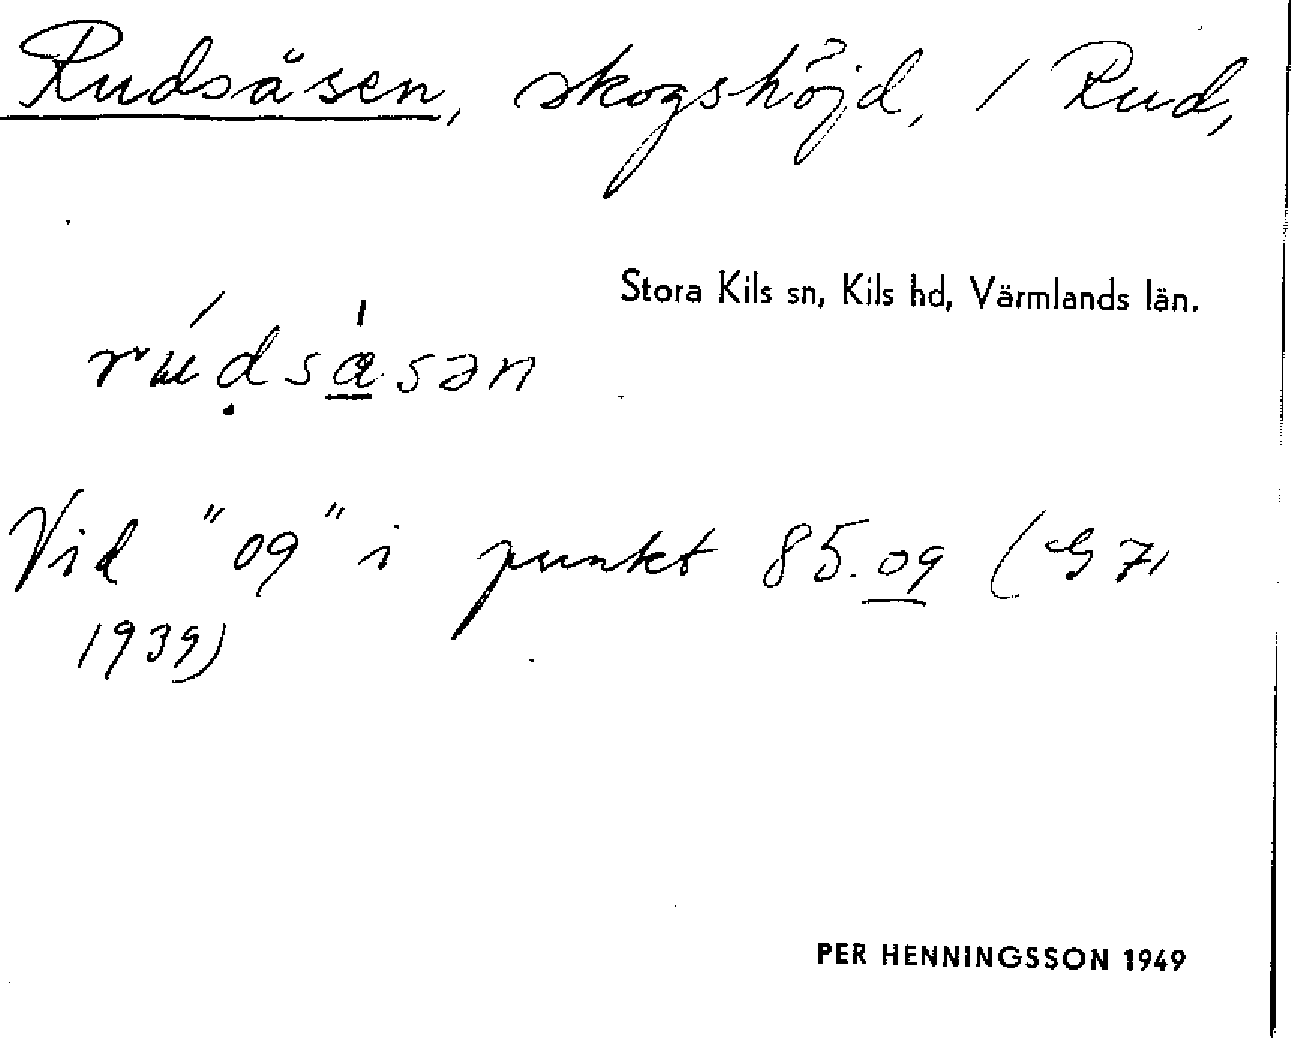 Rudsåsen, skogshöjd, i Rud,
Stora Kils sn, Kils hd, Värmlands län.
Vid "09" i punkt 85.09 (G 7,
1939)
PER HENNINGSSON 1949